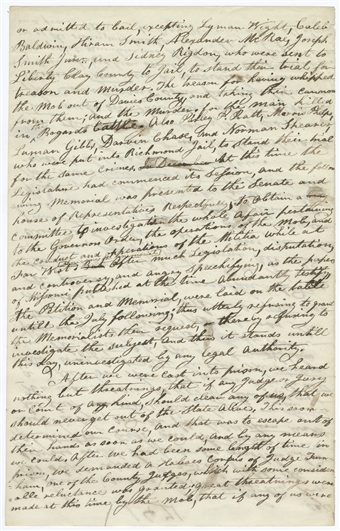 or admitted to bail, excepting Lyman Wight, Caleb
Baldwin, Hiram Smith, Alexander McRae, Joseph
Smith Junr. and Sidney Rigdon, who were sent to
Liberty Clay County to Jail, to stand their trial for
treason and Murder. The treason for having whipped
the Mob out of Davies County, and taking their cannon
from them; and the Murder, for the man killed
in Bogards Battle. Also Parley P. Pratt, Morris Phelps,
Luman Gibbs, Darwin Chase, and Norman Shearer,
who were put into Richmond Jail to Stand their trial
for the Same Crimes. At this time the
Legislature had commenced its Session, and the
Memorial was presented to the Senate and
house of Representatives Respectively, To Obtain a
committee to investigate the whole affair pertaining
to the Governors Orders, the operations of the Mob, and
the conduct and operations of the Militia while at
Far West. But After much Legislation, disputation,
and controversy and angry Speechifying, as the papers
of Missouri published at the time Abundantly testify
the Petition and Memorial, were laid on the table
untill the July following; thus utterly refusing to grant
the Memorialists their request, thereby refusing to
investigate the Subject, and thus it stands untill
this day, uninvestigated by any legal Authority.
After we were cast into prison, we heard
nothing but threatnings, that if any Judge or Jury
or Court of any kind, Should clear any of us, that we
should never get out of the State Alive, This soon
determined our Course, and that was to escape out of
their hands as soon as we could, and by any means
we could. After we had been some length of time in
prison, we demanded a Habeas Corpus of Judge Turn
ham, one of the County Judges, which with some consider
able reluctance was granted, great threatnings were
made at this time by the Mob, that if any of us were